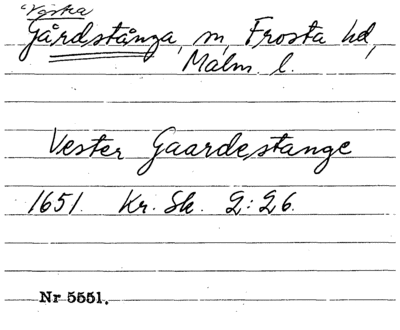 Västra
Gårdstånga, sn, Frosta hd,
Malm. l.
Vester Gaardestange
1651. Kr. Sk. 2:26.
Nr 5551.